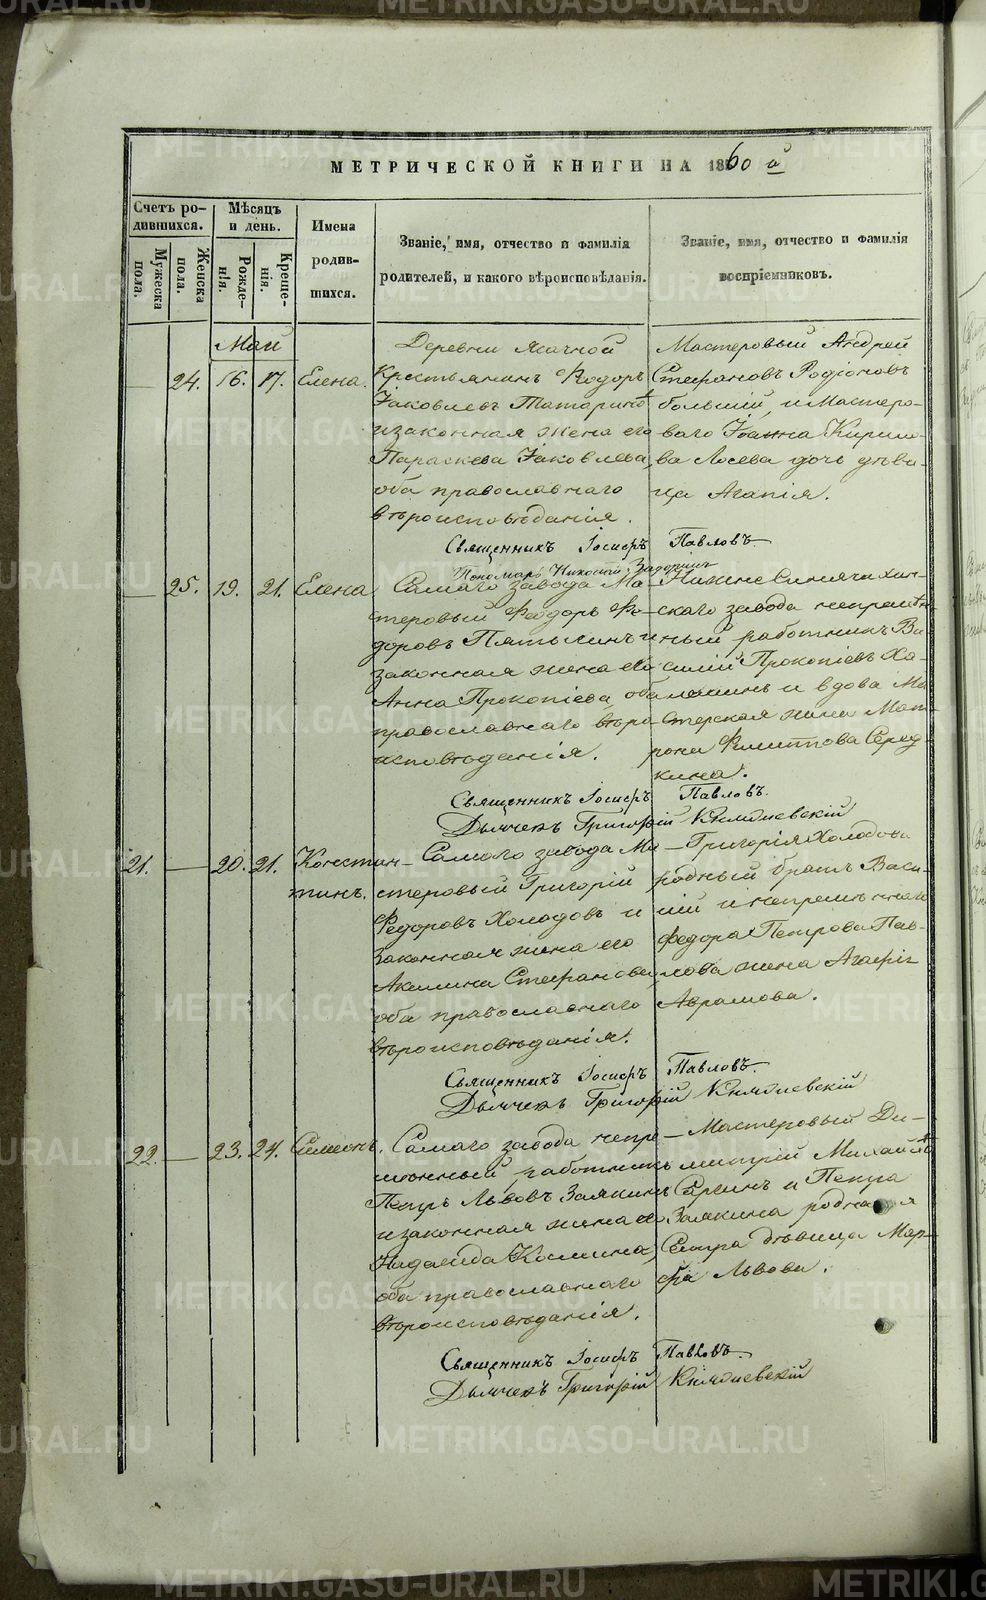 МЕТРИЧЕСКОЙ КНИГИ НА 1860 й
Счетъ ро-
дившихся.
Мужеска пола.
Женска пола.
Мѣсяцъ
и день.
Рожде-
нія.
Креще-
нія.
Имена
родив-
шихся.
Званіе, имя, отчество и фамилія
родителей, и какого вѣроисповѣданія.
Званіе, имя, отчество и фамилія
воспріемниковъ.
Май
24. 16. 17. Елена.
Деревни Ясачной
Крестьянинъ Ѳодоръ
Іаковлевъ Татариновъ
и законная жена его
Параскева Іаковлева,
оба православнаго
вѣроисповѣданія.
Мастеровый Андрей
Стефановъ Родіоновъ
большій, и Мастеро-
ваго Іоанна Кирило-
ва Лосева дочь дѣви-
ца Агапія.
Священникъ Іосифъ Павловъ
Пономарь Николай
25. 19. 21. Елена
Самаго завода Ма-
стеровый Ѳеодоръ Ѳе-
доровъ Пятыгинъ и
законная жена его
Анна Прокопіева, оба
православнаго вѣро-
исповѣданія.
Нижнесинячихин-
скаго завода непремѣн-
ный работникъ Ва-
силій Прокопіевъ Ха-
леминъ и вдова Ма-
стерская жена Мат-
рона Филиппова Серед-
кина.
Священникъ Іосифъ Павловъ.
Дьячекъ Григорій
21. 20. 21. Констан-
тинъ.
Самаго завода Ма-
стеровый Григорій
Ѳедоровъ Холодовъ и
законная жена его
Акилина Стефанова,
оба православнаго
вѣроисповѣданія.
Григорія Холодова
родный братъ Васи-
лій и непремѣннаго
Федора Петрова Пав-
лова жена Агафія
Аврамова.
Священникъ Іосифъ Павловъ.
Дьячекъ Григорій
22. 23. 24. Симеонъ.
Самаго завода непре-
мѣнный работникъ
Петръ Львовъ Заякинъ
и законная жена его
Надежда Космина,
оба православнаго
вѣроисповѣданія.
Мастеровый Ди-
митрій Михайловъ
Саргинъ и Петра
Заякина родная
Сестра дѣвица Мар-
фа Львова.
Священникъ Іосифъ Павловъ.
Дьячекъ Григорій
METRIKI.GASO-URAL.RU